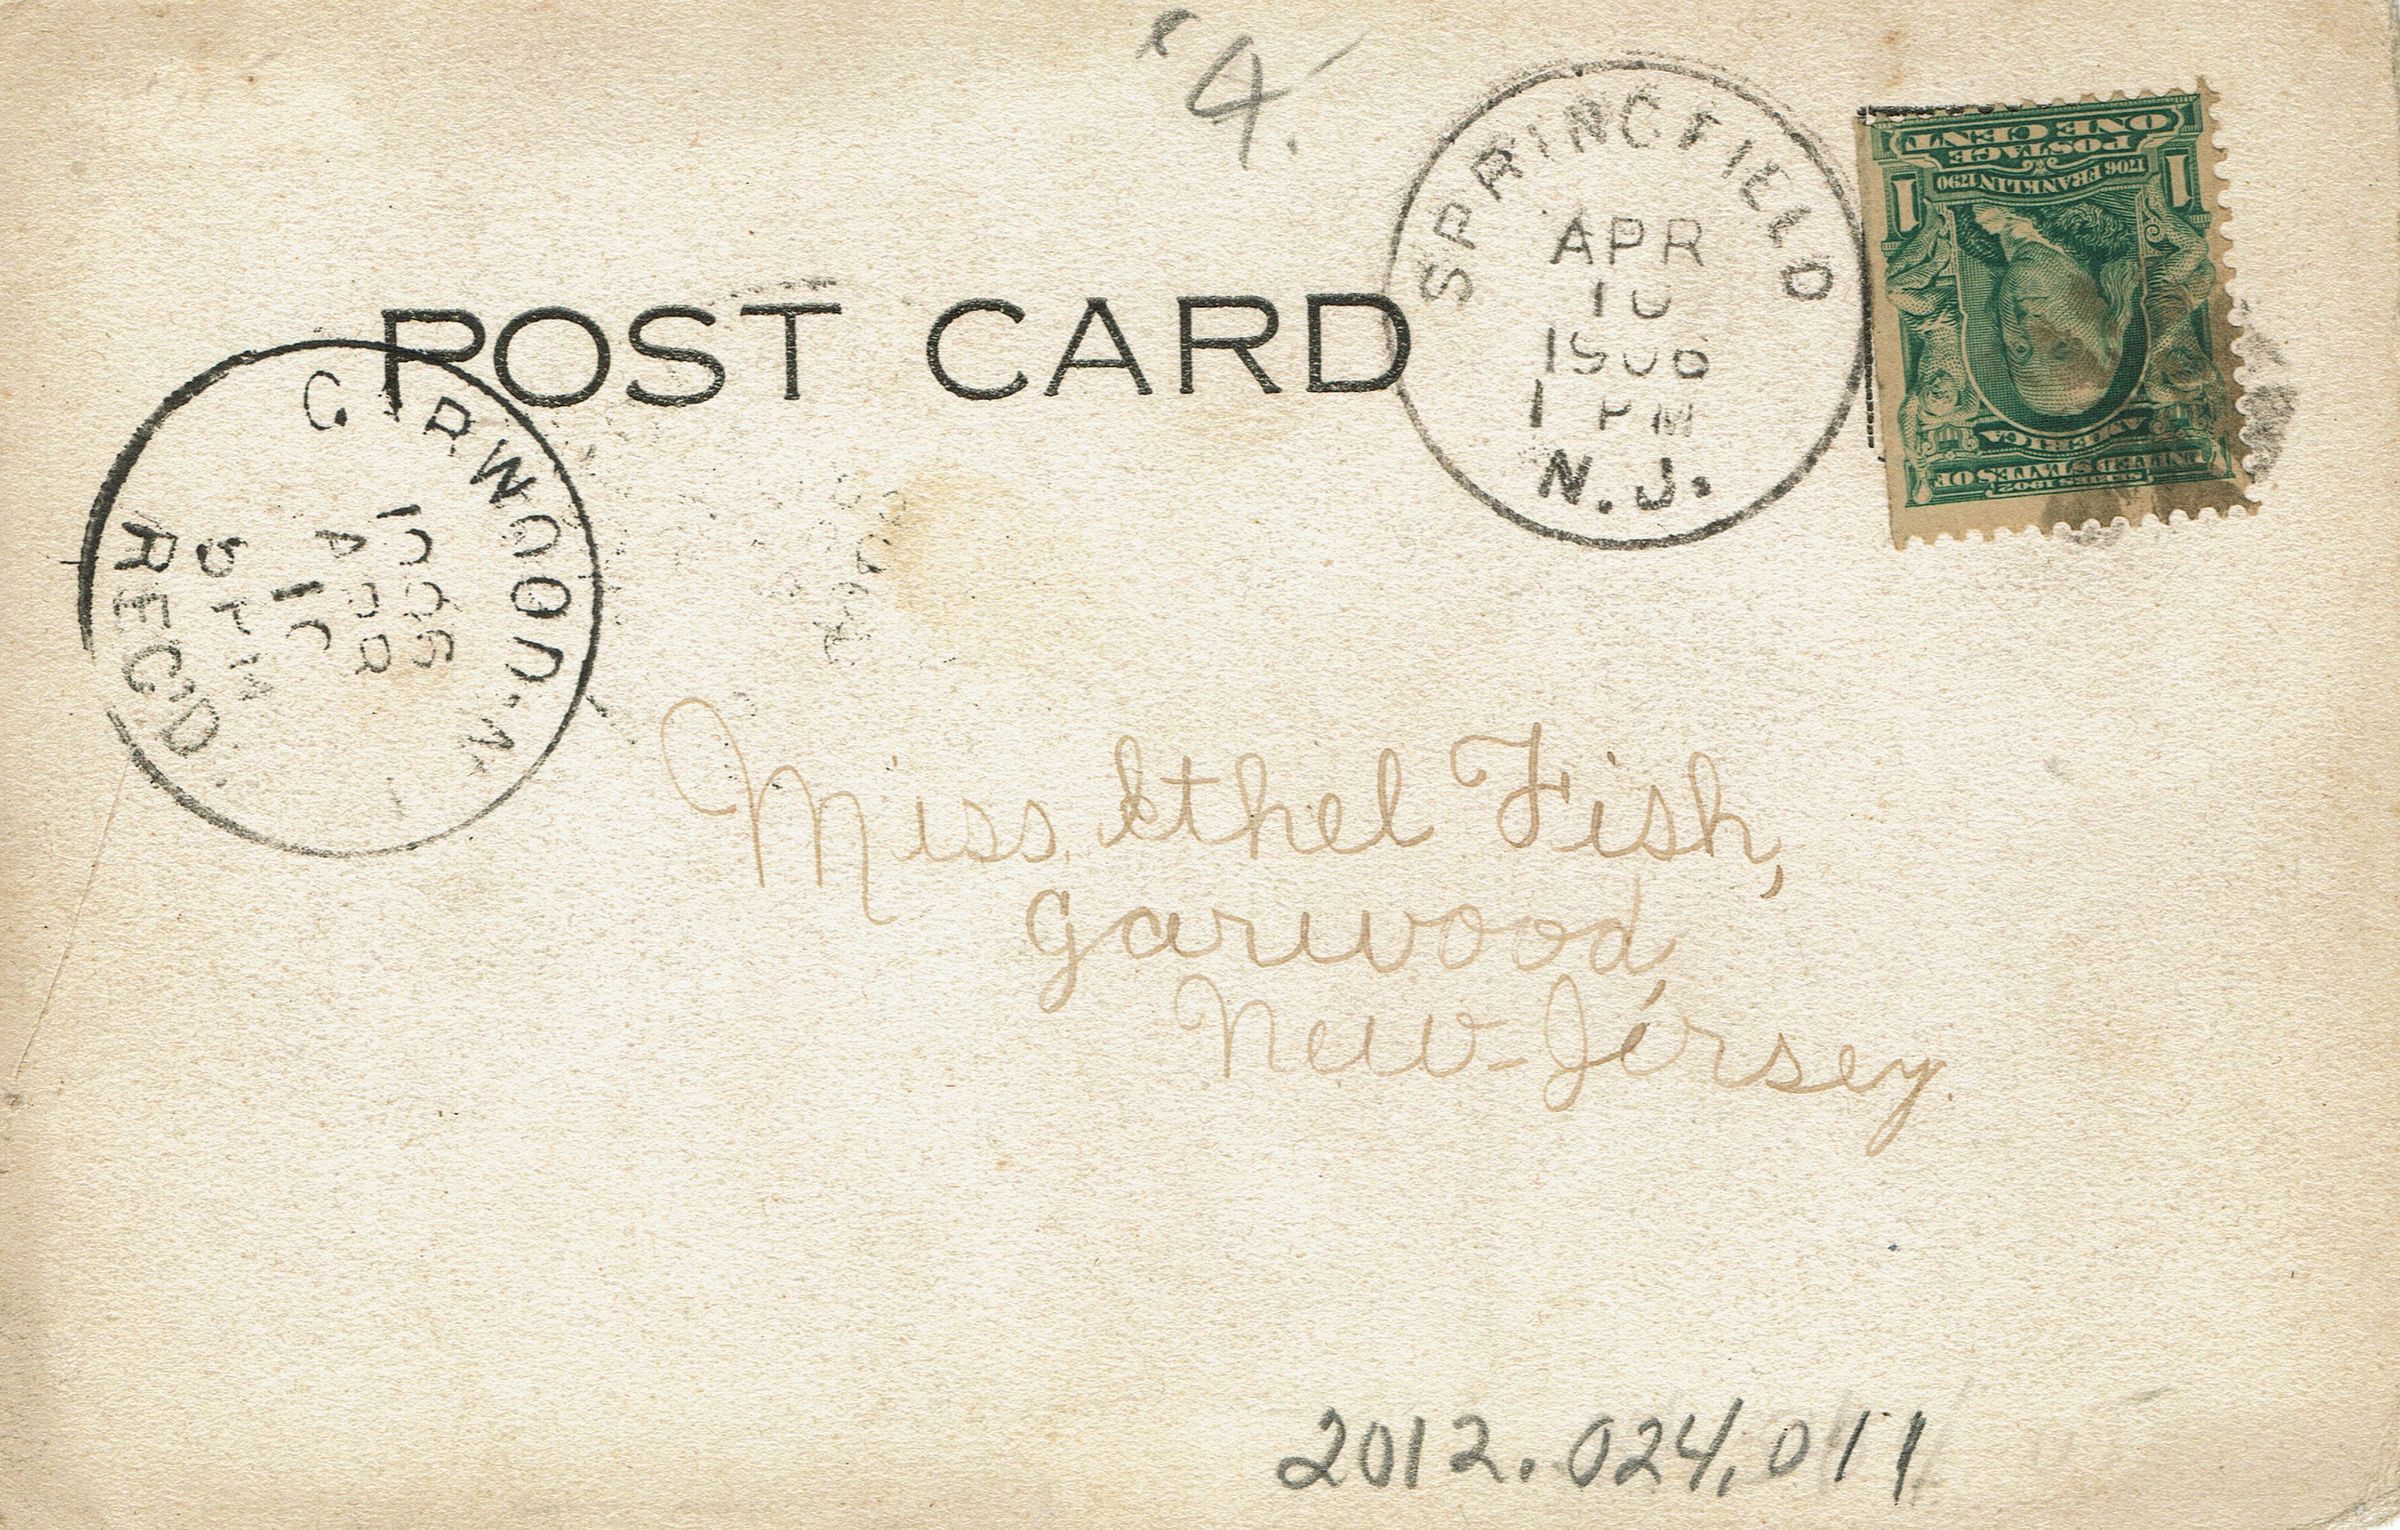 4.
POST CARD
SPRINGFIELD
APR
10
1906
1 PM
N.J.
ONE CENT
POSTAGE
1706 FRANKLIN 1790
1 1
AMERICA
UNITED STATES OF
SERIES 1902
GARWOOD. N
1906
APR
10
5 PM
REC'D.
Miss. Ethel Fish,
Garwood
New-Jersey.
2012.024.011